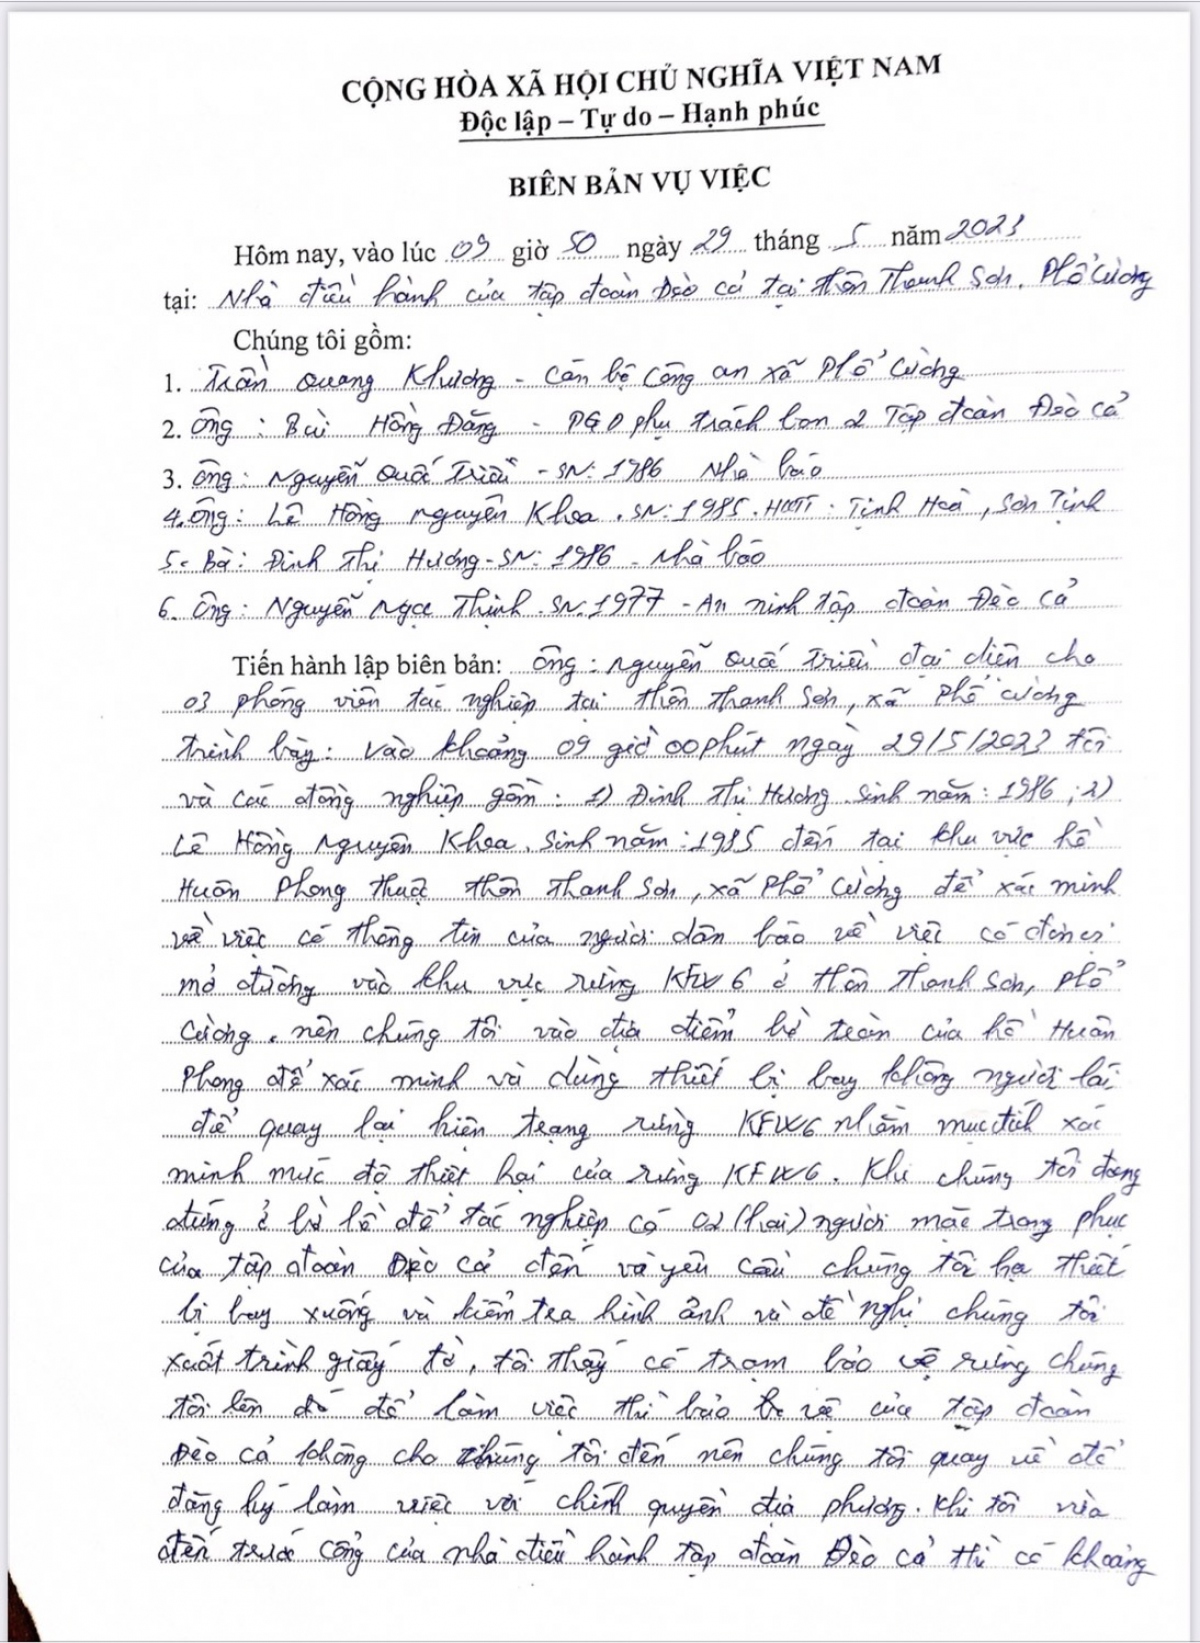 CỘNG HÒA XÃ HỘI CHỦ NGHĨA VIỆT NAM
Độc lập – Tự do – Hạnh phúc
BIÊN BẢN VỤ VIỆC
Hôm nay, vào lúc 09 giờ 50 ngày 29 tháng 5 năm 2023
tại: Nhà điều hành của tập đoàn Đèo cả tại thôn Thanh Sơn, Phổ Cường
Chúng tôi gồm:
1. Trần Quang Khương - Cán bộ Công an xã Phổ Cường
2. Ông: Bùi Hồng Đăng - PGĐ phụ trách ban 2 Tập đoàn Đèo cả
3. Ông: Nguyễn Quốc Triều - SN: 1986 Nhà báo
4. Ông: Lê Hồng Nguyên Khoa. SN: 1985. HKTT: Tịnh Hoà, Sơn Tịnh
5. Bà: Đinh Thị Hương - SN: 1986 - Nhà báo
6. Ông: Nguyễn Ngọc Thịnh. SN. 1977 - An ninh tập đoàn Đèo Cả
Tiến hành lập biên bản: Ông: Nguyễn Quốc Triều đại diện cho
03 phóng viên tác nghiệp tại thôn Thanh Sơn, xã Phổ Cường
trình bày: Vào khoảng 09 giờ 00 phút ngày 29/5/2023 tôi
và các đồng nghiệp gồm: 1) Đinh Thị Hương. Sinh năm: 1986; 2)
Lê Hồng Nguyên Khoa. Sinh năm: 1985 đến tại khu vực hồ
Huân Phong thuộc thôn Thanh Sơn, xã Phổ Cường để xác minh
về việc có thông tin của người dân báo về việc có đơn vị
mở đường vào khu vực rừng KFW6 ở thôn Thanh Sơn, Phổ
Cường. nên chúng tôi vào địa điểm bờ toàn của hồ Huân
Phong để xác minh và dùng thiết bị bay không người lái
để quay lại hiện trạng rừng KFW6 nhằm mục đích xác
minh mức độ thiệt hại của rừng KFW6. Khi chúng tôi đang
đứng ở bờ hồ để tác nghiệp có 02 (hai) người mặc trang phục
của tập đoàn Đèo cả đến và yêu cầu chúng tôi hạ thiết
bị bay xuống và kiểm tra hình ảnh và đề nghị chúng tôi
xuất trình giấy tờ, tôi thấy có trạm bảo vệ rừng chúng
tôi lên đó để làm việc thì bảo vệ của tập đoàn
Đèo cả không cho chúng tôi đến nên chúng tôi quay về để
đăng ký làm việc với chính quyền địa phương. Khi tôi vừa
đến trước cổng của nhà điều hành tập đoàn Đèo cả thì có khoảng